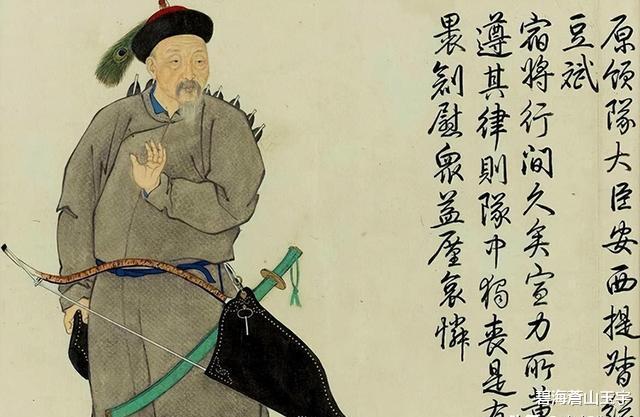 原領隊大臣安西提督
豆斌
宿將行間久矣宣力所
遵其律則隊中獨喪是
裹創慰眾益厪哀憐
碧海蒼山玉宇